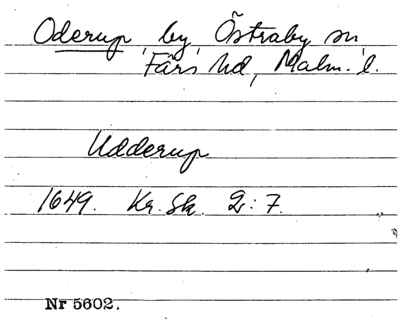 Oderup by Östraby sn
Färs hd, Malm. l.
Udderup
1649. Kr. Sk. 2: 7.
Nr 5602.